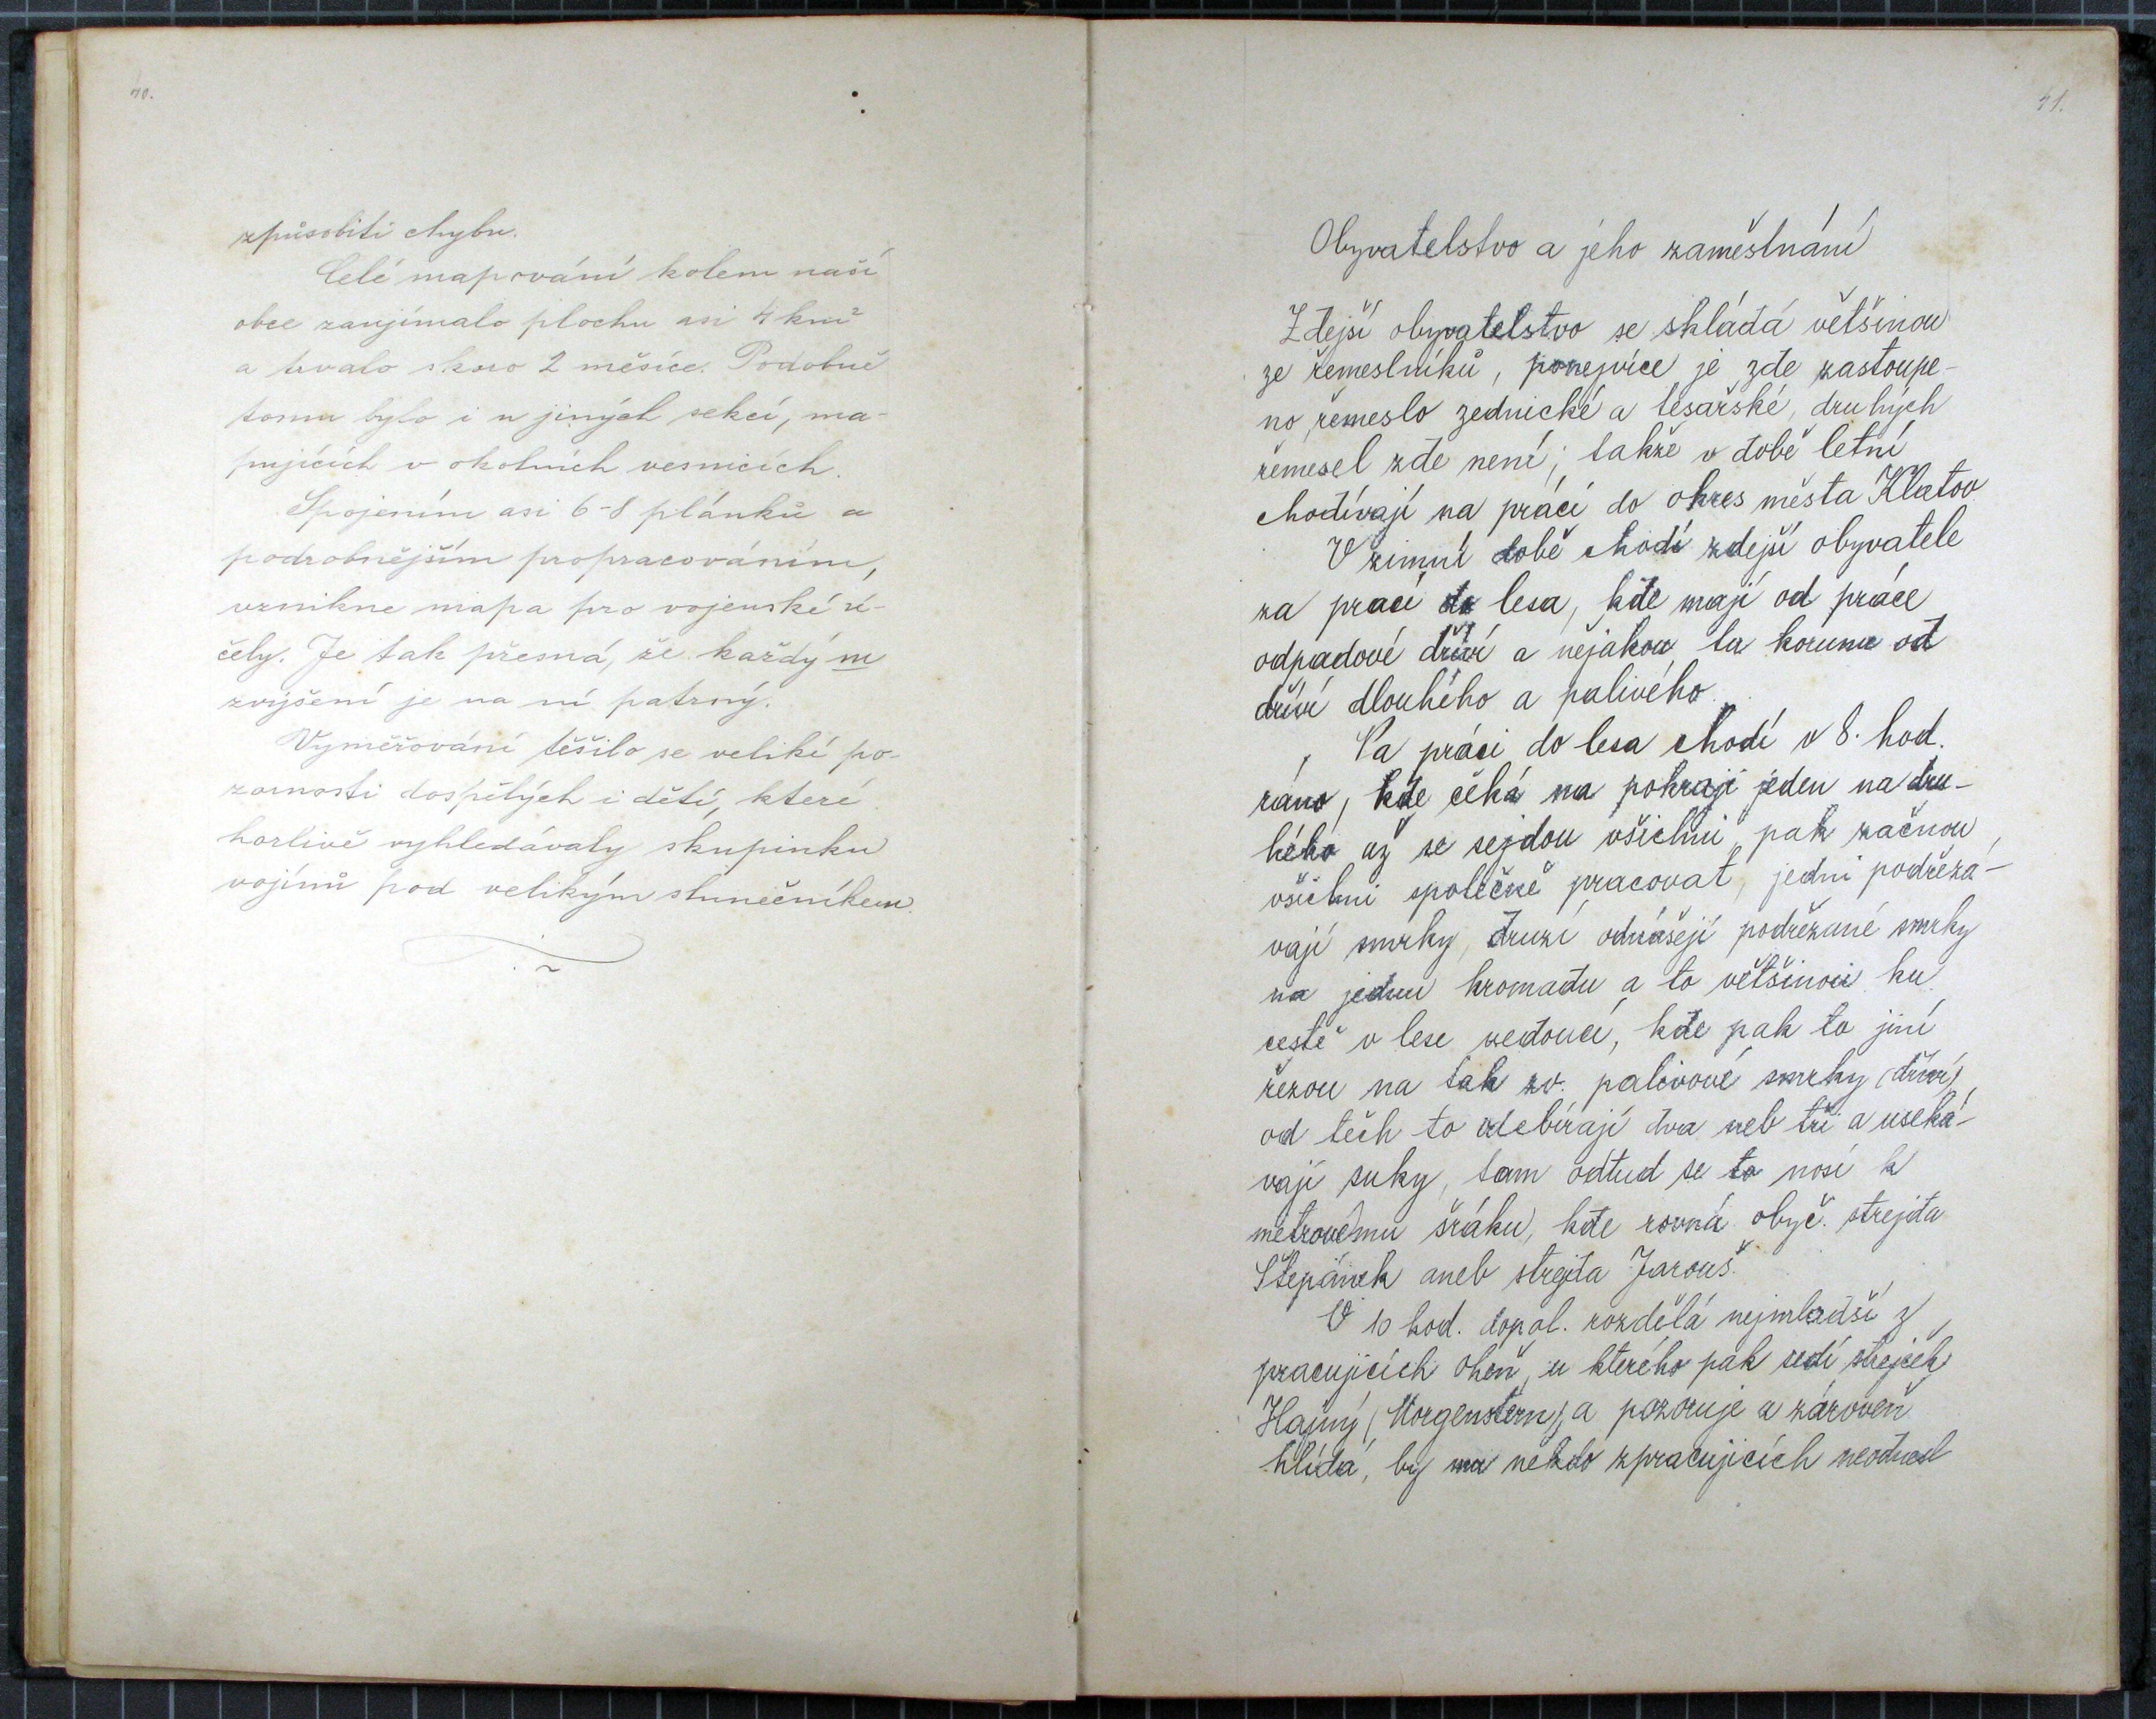 40.
způsobiti chybu.
Celé mapování kolem naší
obce zaujímalo plochu asi 4 km²
a trvalo skoro 2 měsíce. Podobně
tomu bylo i u jiných sekcí, ma-
pujících v okolních vesnicích.
Spojením asi 6-8 plánků a
podrobnějším propracováním,
vznikne mapa pro vojenské ú-
čely. Je tak přesná, že každý m
zvýšení je na ní patrný.
Vyměřování těšilo se veliké po-
zornosti dospělých i dětí, které
horlivě vyhledávaly skupinku
vojínů pod velikým slunečníkem.
41.
Obyvatelstvo a jeho zaměstnání
Zdejší obyvatelstvo se skládá většinou
ze řemeslníků, ponejvíce je zde zastoupe-
no řemeslo zednické a tesařské, druhých
řemesel zde není; takže v době letní
chodívají na práci do okres města Klatov
V zimní době chodí zdejší obyvatele
za prací do lesa, kde mají od práce
odpadové dříví a nějakou ta korunu od
dříví dlouhého a palivého.
Na práci do lesa chodí v 8. hod.
ráno, kde čeká na pokraji jeden na dru-
hého až se sejdou všichni, pak začnou
všichni společně pracovat, jedni podřezá-
vají smrky, druzí odnášejí podřezané smrky
na jednu hromadu a to většinou ku
cestě v lese vedoucí, kde pak to jiní
řezou na tak zv. palivové smrky (dříví)
od těch to odebírají dva neb tři a useká-
vají suky, tam odtud se to nosí k
metrovému šráku, kde rovná obyč. strejda
Štepánek aneb strejda Jarouš.
V 10 hod. dopol. rozdělá nejmladší z
pracujících oheň, u kterého pak sedí strejček
Hajný (Morgenstern), a pozoruje a zároveň
hlídá, by mu někdo zpracujicích neodnesl